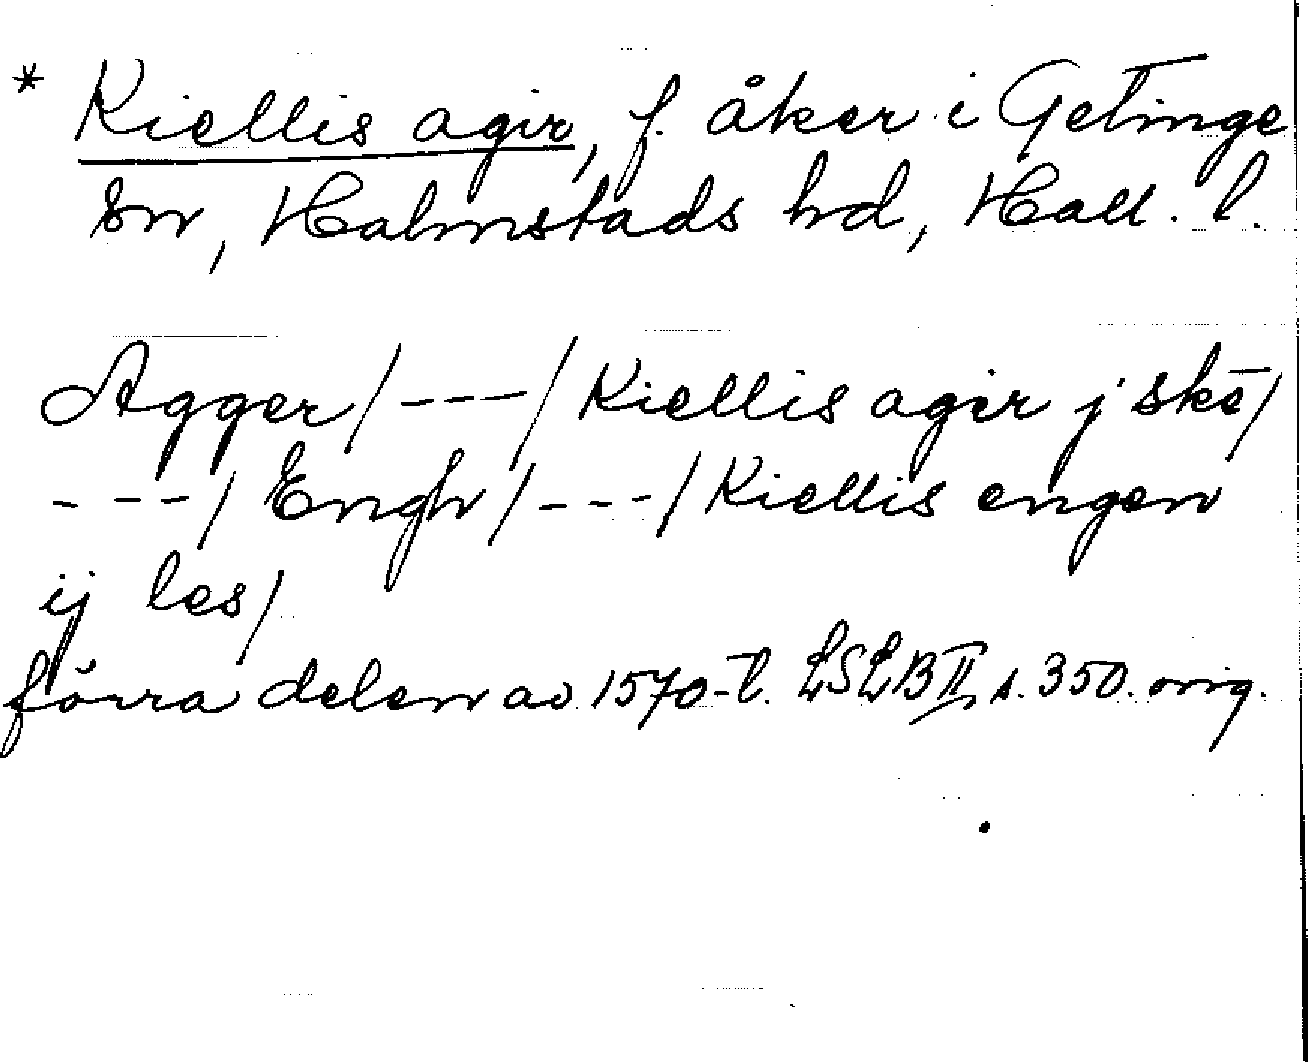 * Kiellis agir, f. åker i Getinge
sn, Halmstads hd, Hall. l.
Agger/---/Kiellis agir j skē/
---/Engh/---/Kiellis engen
ij les/
förra delen av 1570-t. LSLB II, s. 350. orig.